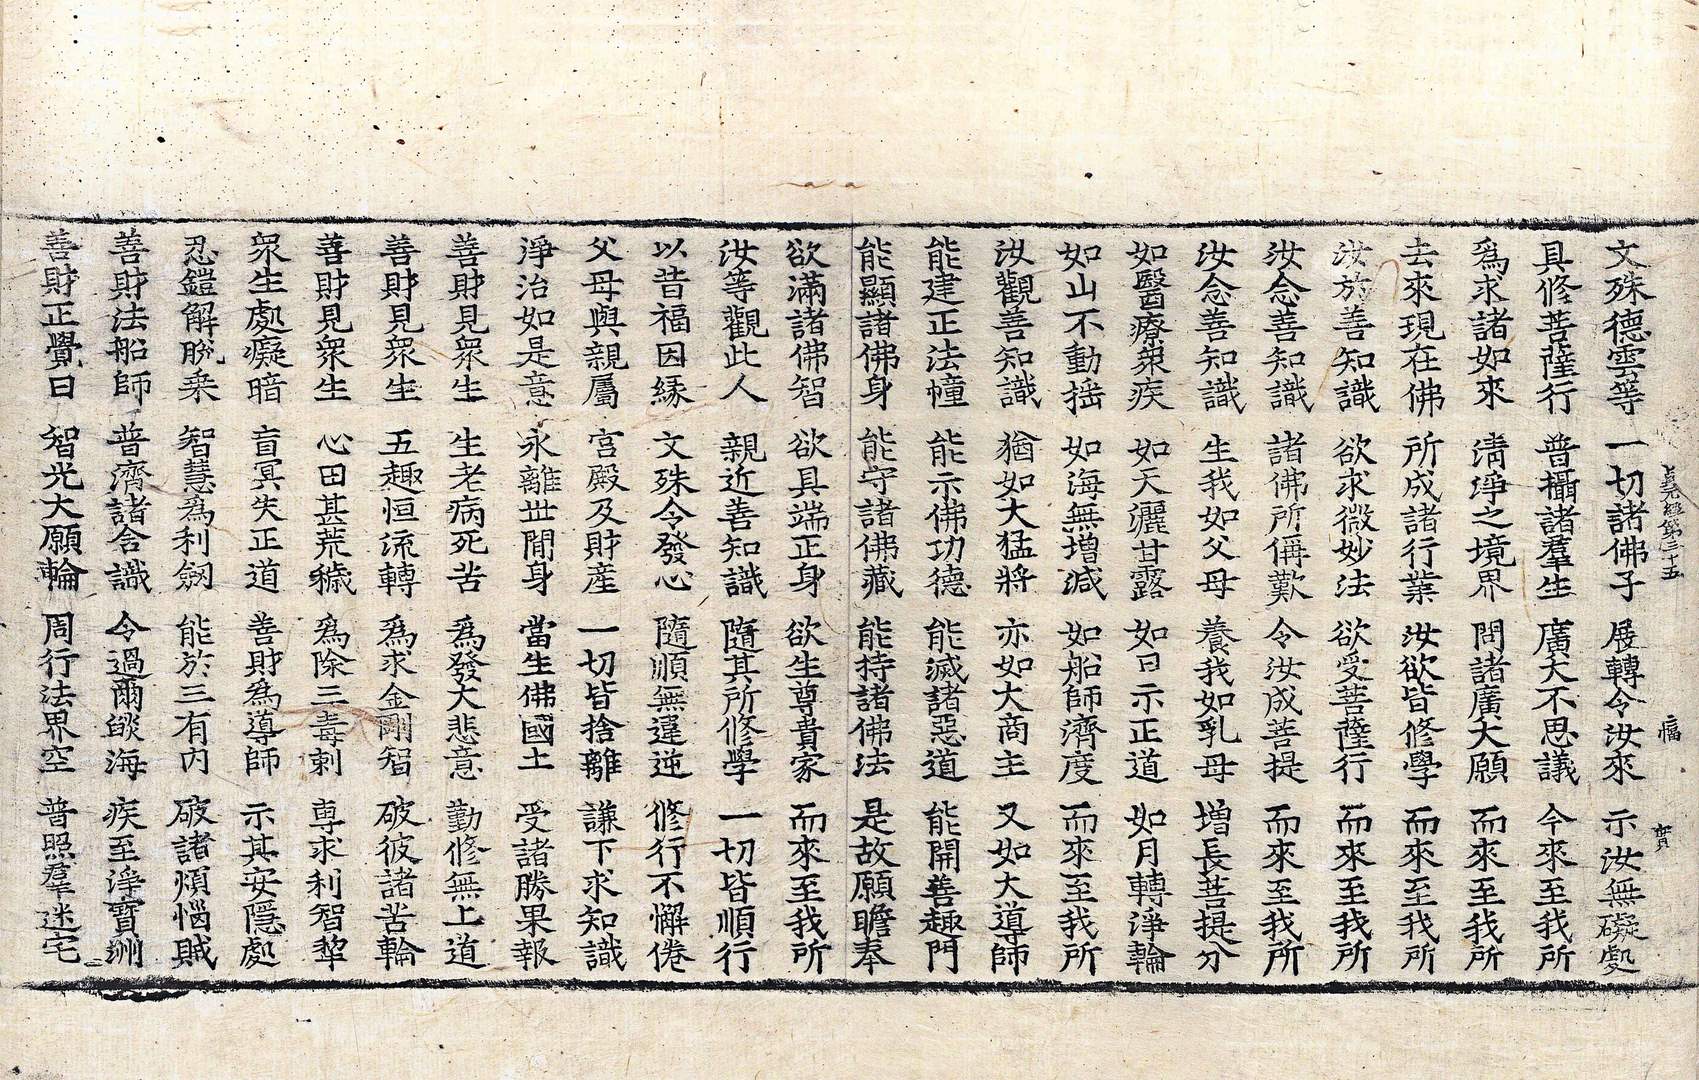 文殊德雲等 一切諸佛子 展轉令汝來 示汝無礙處
具修菩薩行 普攝諸羣生 廣大不思議 今來至我所
爲求諸如來 淸淨之境界 問諸廣大願 而來至我所
去來現在佛 所成諸行業 汝欲皆修學 而來至我所
汝於善知識 欲求微妙法 欲受菩薩行 而來至我所
汝念善知識 諸佛所稱歎 令汝成菩提 而來至我所
汝念善知識 生我如父母 養我如乳母 增長菩提分
如醫療衆疾 如天灑甘露 如日示正道 如月轉淨輪
如山不動揺 如海無增減 如船師濟度 而來至我所
汝觀善知識 猶如大猛將 亦如大商主 又如大導師
能建正法幢 能示佛功德 能滅諸惡道 能開善趣門
能顯諸佛身 能守諸佛藏 能持諸佛法 是故願瞻奉
欲滿諸佛智 欲具端正身 欲生尊貴家 而來至我所
汝等觀此人 親近善知識 隨其所修學 一切皆順行
以昔福因緣 文殊令發心 隨順無違逆 修行不懈倦
父母與親屬 宮殿及財產 一切皆捨離 謙下求知識
淨治如是意 永離世間身 當生佛國土 受諸勝果報
善財見衆生 生老病死苦 爲發大悲意 勤修無上道
善財見衆生 五趣恒流轉 爲求金剛智 破彼諸苦輪
善財見衆生 心田甚荒穢 爲除三毒刺 專求利智犂
衆生處癡暗 盲冥失正道 善財爲導師 示其安隱處
忍鎧解脫乘 智慧爲利劒 能於三有內 破諸煩惱賊
善財法船師 普濟諸含識 令過爾燄海 疾至淨寶洲
善財正覺日 智光大願輪 周行法界空 普照羣迷宅